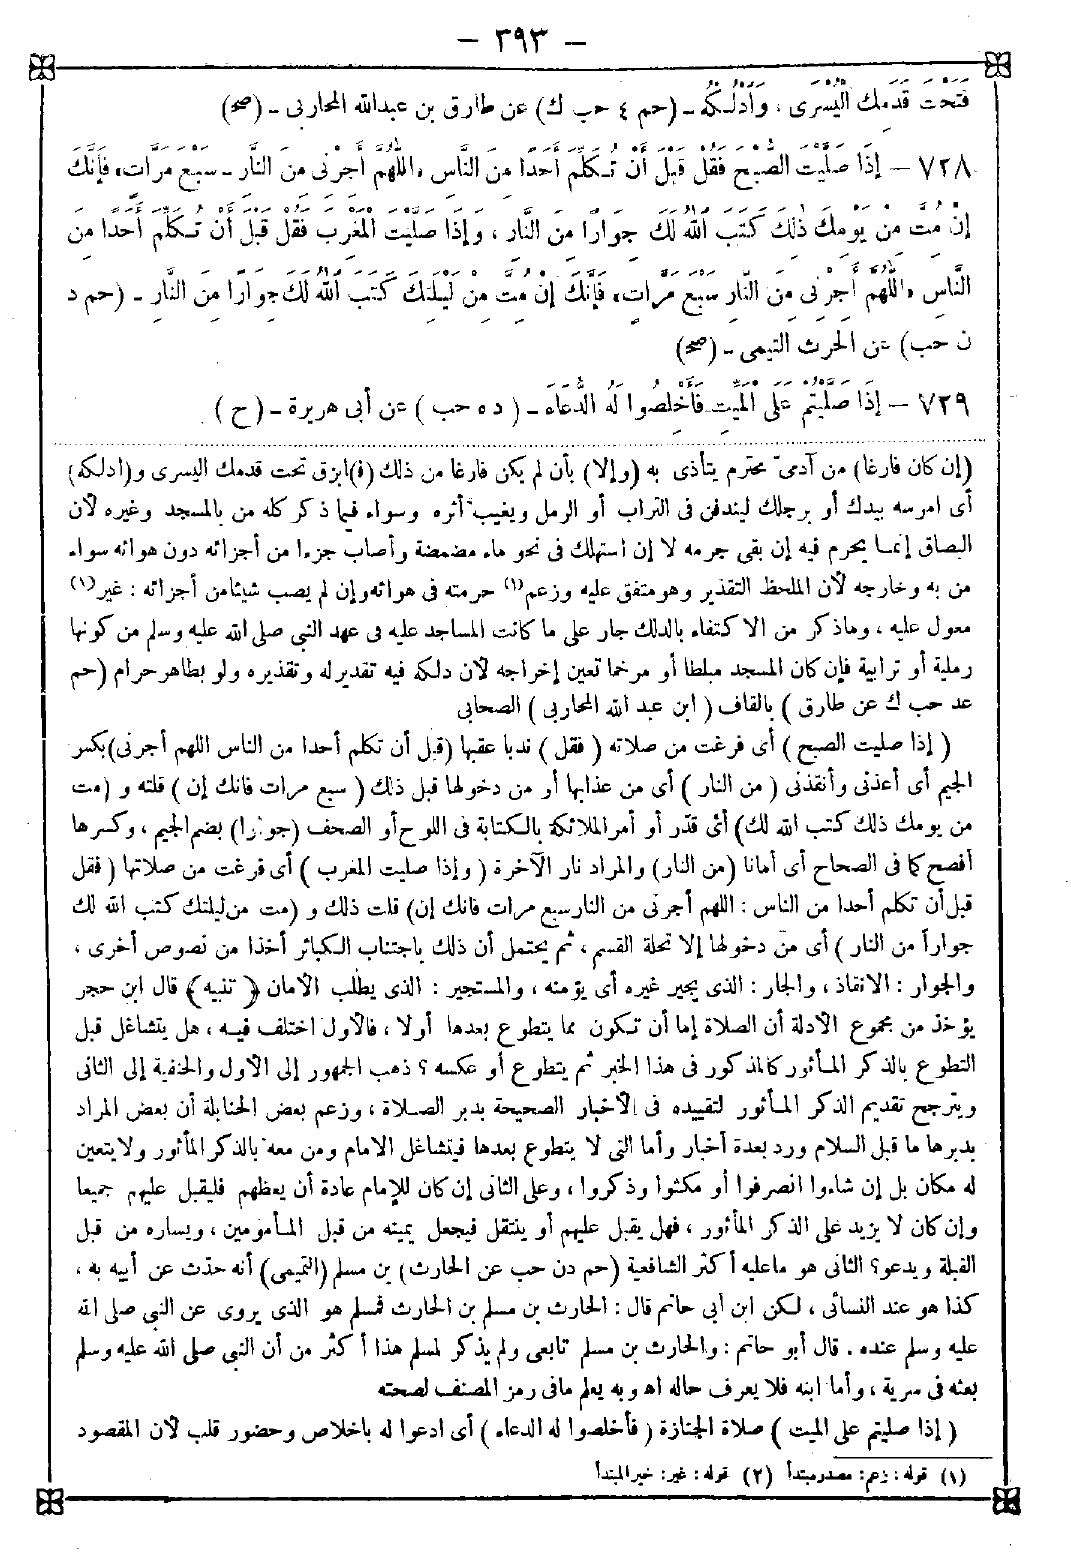 – ٣٩٣ –
فَتَحْتَ قَدَمِكَ الْيُسْرَى ، وَادْلُكْهُ ـ (حم ٤ حب ك) عن طارق بن عبدالله المحاربى ـ (صح)
٧٢٨ – إِذَا صَلَّيْتَ الصُّبْحَ فَقُلْ قَبْلَ أَنْ تُكَلِّمَ أَحَدًا مِنَ النَّاسِ «اللَّهُمَّ أَجِرْنِى مِنَ النَّارِ ـ سَبْعَ مَرَّاتٍ» فَإِنَّكَ
إِنْ مُتَّ مِنْ يَوْمِكَ ذٰلِكَ كَتَبَ اللّٰهُ لَكَ جِوَارًا مِنَ النَّارِ ، وَإِذَا صَلَّيْتَ الْمَغْرِبَ فَقُلْ قَبْلَ أَنْ تُكَلِّمَ أَحَدًا مِنَ
النَّاسِ «اللَّهُمَّ أَجِرْنِى مِنَ النَّارِ سَبْعَ مَرَّاتٍ» فَإِنَّكَ إِنْ مُتَّ مِنْ لَيْلَتِكَ كَتَبَ اللّٰهُ لَكَ جِوَارًا مِنَ النَّارِ ـ (حم د
ن حب) عن الحرث التيمى ـ (صح)
٧٢٩ – إِذَا صَلَّيْتُمْ عَلَى الْمَيِّتِ فَأَخْلِصُوا لَهُ الدُّعَاءَ ـ ( د ه حب ) عن أبى هريرة ـ ( ح )
(إن كان فارغا) من آدمى محترم يتأذى به (وإلا) بأن لم يكن فارغا من ذلك (ف)ابزق تحت قدمك اليسرى و(ادلكه)
أى امرسه بيدك أو برجلك ليندفن فى التراب أو الرمل ويغيب أثره وسواء فيما ذكر كله من بالمسجد وغيره لأن
البصاق إنما يحرم فيه إن بقى جرمه لا إن استهلك فى نحو ماء مضمضة وأصاب جزءا من أجزائه دون هوائه سواء
من به وخارجه لأن الملحظ التقذير وهو متفق عليه وزعم(١) حرمته فى هوائه وإن لم يصب شيئا من أجزائه : غير(١)
معول عليه ، وما ذكر من الاكتفاء بالدلك جار على ما كانت المساجد عليه فى عهد النبى صلى الله عليه وسلم من كونها
رملية أو ترابية فإن كان المسجد مبلطا أو مرخما تعين إخراجه لأن دلكه فيه تقدير له وتقذيره ولو بطاهر حرام (حم
عد حب ك عن طارق ) بالقاف ( ابن عبد الله المحاربى ) الصحابى
( إذا صليت الصبح ) أى فرغت من صلاته ( فقل ) ندبا عقبها (قبل أن تكلم أحدا من الناس اللهم أجرنى) بكسر
الجيم أى أعذنى وأنقذنى ( من النار ) أى من عذابها أو من دخولها قبل ذلك ( سبع مرات فانك إن ) قلته و (مت
من يومك ذلك كتب الله لك) أى قدر أو أمر الملائكة بالكتابة فى اللوح أو الصحف (جوارا) بضم الجيم ، وكسرها
أفصح كما فى الصحاح أى أمانا (من النار) والمراد نار الآخرة ( وإذا صليت المغرب ) أى فرغت من صلاتها ( فقل
قبل أن تكلم أحدا من الناس : اللهم أجرنى من النار سبع مرات فانك إن) قلت ذلك و (مت من ليلتك كتب الله لك
جواراً من النار ) أى من دخولها إلا تحلة القسم ، ثم يحتمل أن ذلك باجتناب الكبائر أخذا من نصوص أخرى ،
والجوار : الانقاذ ، والجار : الذى يجير غيره أى يؤمنه ، والمستجير : الذى يطلب الأمان ( تنبيه ) قال ابن حجر
يؤخذ من مجموع الأدلة أن الصلاة إما أن تكون مما يتطوع بعدها أولا ، فالأول اختلف فيه ، هل يتشاغل قبل
التطوع بالذكر المأثور كالمذكور فى هذا الخبر ثم يتطوع أو عكسه ؟ ذهب الجمهور إلى الأول والحنفية إلى الثانى
ويترجح تقديم الذكر المأثور لتقييده فى الأخبار الصحيحة بدبر الصلاة ، وزعم بعض الحنابلة أن بعض المراد
بدبرها ما قبل السلام ورد بعدة أخبار وأما التى لا يتطوع بعدها فيتشاغل الامام ومن معه بالذكر المأثور ولا يتعين
له مكان بل إن شاءوا انصرفوا أو مكثوا وذكروا ، وعلى الثانى إن كان للإمام عادة أن يعظهم فليقبل عليهم جميعا
وإن كان لا يزيد على الذكر المأثور ، فهل يقبل عليهم أو ينتقل فيجعل يمينه من قبل المأمومين ، ويساره من قبل
القبلة ويدعو؟ الثانى هو ما عليه أكثر الشافعية (حم دن حب عن الحارث) بن مسلم (التميمى) أنه حدث عن أبيه به ،
كذا هو عند النسائى ، لكن ابن أبى حاتم قال : الحارث بن مسلم بن الحارث فمسلم هو الذى يروى عن النبى صلى الله
عليه وسلم عنده . قال أبو حاتم : والحارث بن مسلم تابعى ولم يذكر لمسلم هذا أكثر من أن النبى صلى الله عليه وسلم
بعثه فى سرية ، وأما ابنه فلا يعرف حاله اه وبه يعلم مافى رمز المصنف لصحته
( إذا صليتم على الميت ) صلاة الجنازة ( فأخلصوا له الدعاء ) أى ادعوا له باخلاص وحضور قلب لأن المقصود
(١) قوله : زعم : مصدر مبتدأ (٢) قوله : غير : خبر المبتدأ